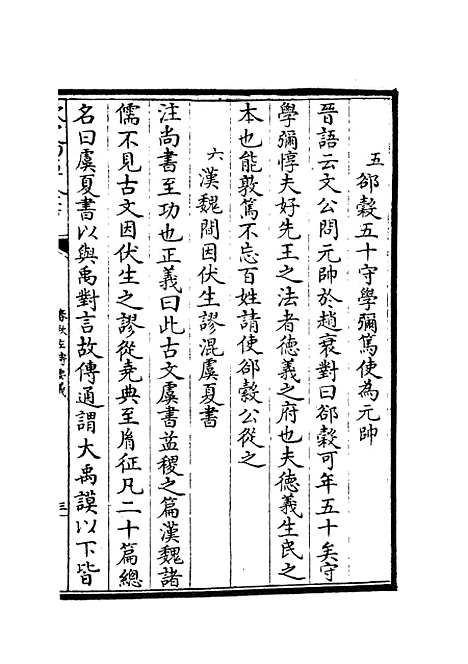 五郤縠五十守學彌篤使為元帥
晉語云文公問元帥於趙衰對曰郤縠可年五十矣守
學彌惇夫好先王之法者德義之府也夫德義生民之
本也能敦篤不忘百姓請使郤縠公從之
六漢魏間因伏生謬混虞夏書
注尚書至功也正義曰此古文虞書益稷之篇漢魏諸
儒不見古文因伏生之謬從堯典至胤征凡二十篇總
名曰虞夏書以與禹對言故傳通謂大禹謨以下皆
春秋左傳要義
三